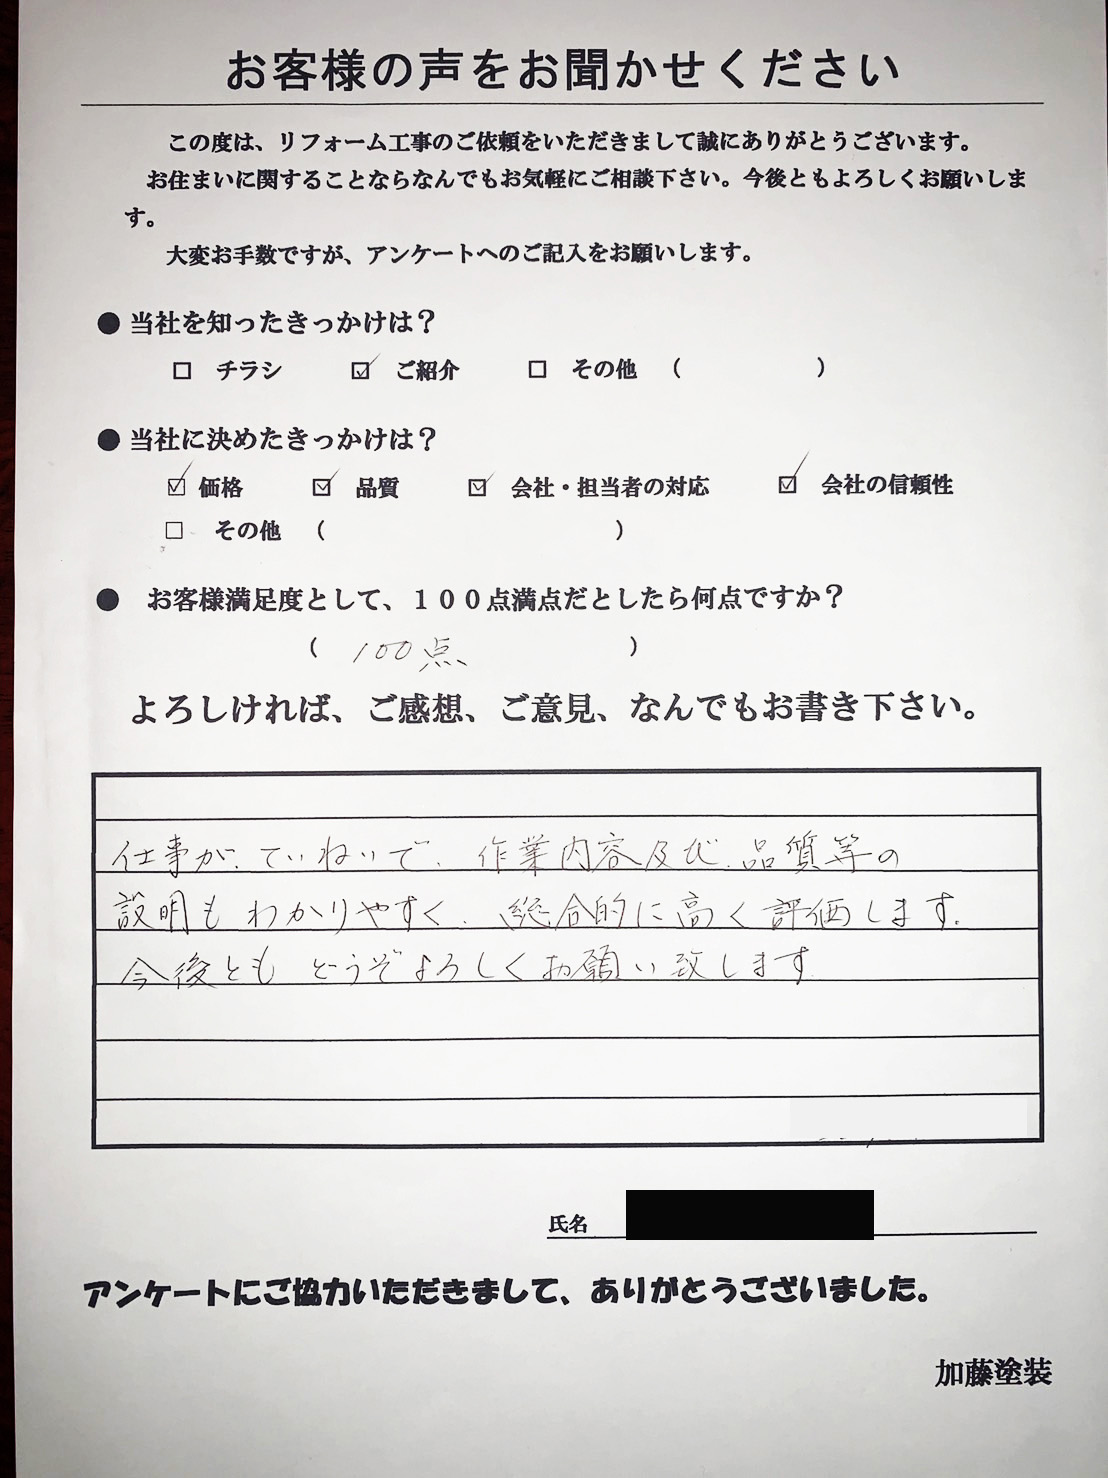 お客様の声をお聞かせください
この度は、リフォーム工事のご依頼をいただきまして誠にありがとうございます。
お住まいに関することならなんでもお気軽にご相談下さい。今後ともよろしくお願いしま
す。
大変お手数ですが、アンケートへのご記入をお願いします。
● 当社を知ったきっかけは？
□ チラシ ☑ ご紹介 □ その他 （ ）
● 当社に決めたきっかけは？
☑ 価格 ☑ 品質 ☑ 会社・担当者の対応 ☑ 会社の信頼性
□ その他 （ ）
● お客様満足度として、１００点満点だとしたら何点ですか？
（ 100点 ）
よろしければ、ご感想、ご意見、なんでもお書き下さい。
仕事が、ていねいで、作業内容及び、品質等の
説明もわかりやすく、総合的に高く評価します。
今後とも どうぞよろしくお願い致します
氏名
アンケートにご協力いただきまして、ありがとうございました。
加藤塗装